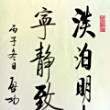 淡泊明
寧靜致
丙子冬日 启功